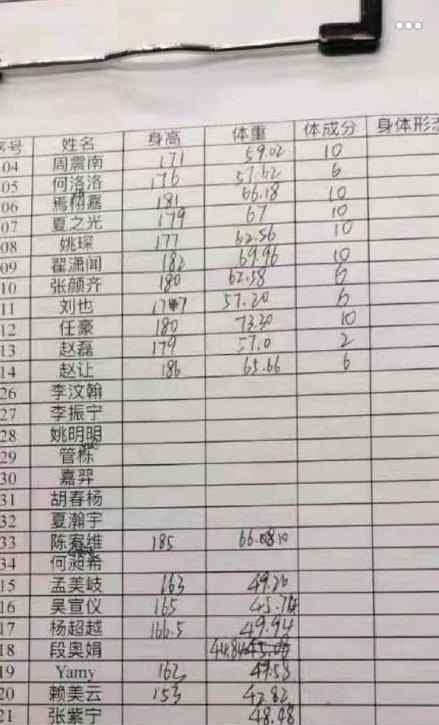 序号 姓名 身高 体重 体成分 身体形态
04 周震南 171 59.02 10
05 何洛洛 176 57.62 6
06 焉栩嘉 181 66.18 10
07 夏之光 179 67 10
08 姚琛 177 62.56 10
09 翟潇闻 182 69.96 10
10 张颜齐 180 62.58 6
11 刘也 57.20 6
12 任豪 180 73.30 10
13 赵磊 179 57.0 2
14 赵让 186 65.66 6
26 李汶翰
27 李振宁
28 姚明明
29 管栎
30 嘉羿
31 胡春杨
32 夏瀚宇
33 陈宥维 185
34 何昶希
15 孟美岐 163 49.26
16 吴宣仪 165
17 杨超越 166.5 49.94
18 段奥娟 44.84
19 Yamy 162 49.58
20 赖美云 153 42.82
21 张紫宁 48.08